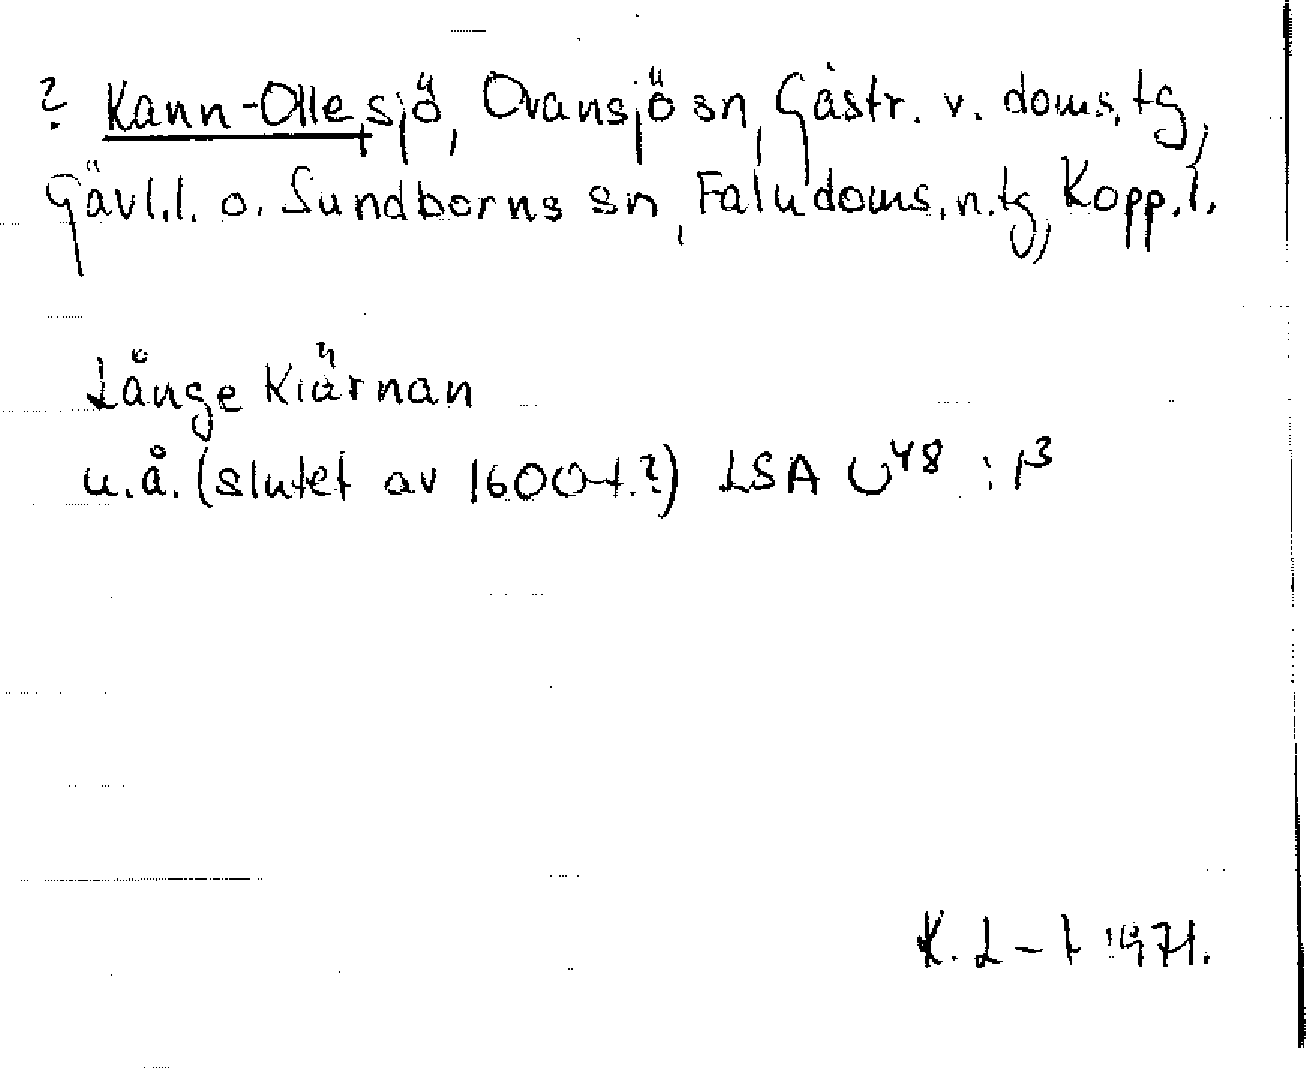 ? Kann-Ollesjö, Ovansjö sn, Gästr. v. doms. tg,
Gävl.l. o. Sundborns sn, Falu doms. n. tg, Kopp. l.
Långe Kiärnan
u.å. (slutet av 1600-t.?) LSA U48 : 13
K. L-t 1971.